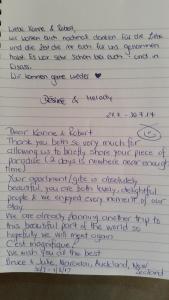 Liebe Karine & Robert,
wir wollen euch nochmals danken für die Liebe
und die Zeit die ihr euch für uns genommen
habt. Es war sehr schön bei euch und in
Elsass.
Wir kommen gerne wieder ♥
& Melody
Dear Karine & Robert
Thank you both so very much for
allowing us to briefly share your piece of
paradise (2 days is nowhere near enough
time)
Your apartment/gite is absolutely
beautiful, you are both lovely, delightful
people & we enjoyed every moment of our
stay.
We are already planning another trip to
this beautiful part of the world so
hopefully we will meet again
C'est magnifique!
We wish you all the best
Bruce & Julie, Auckland, New
Zealand